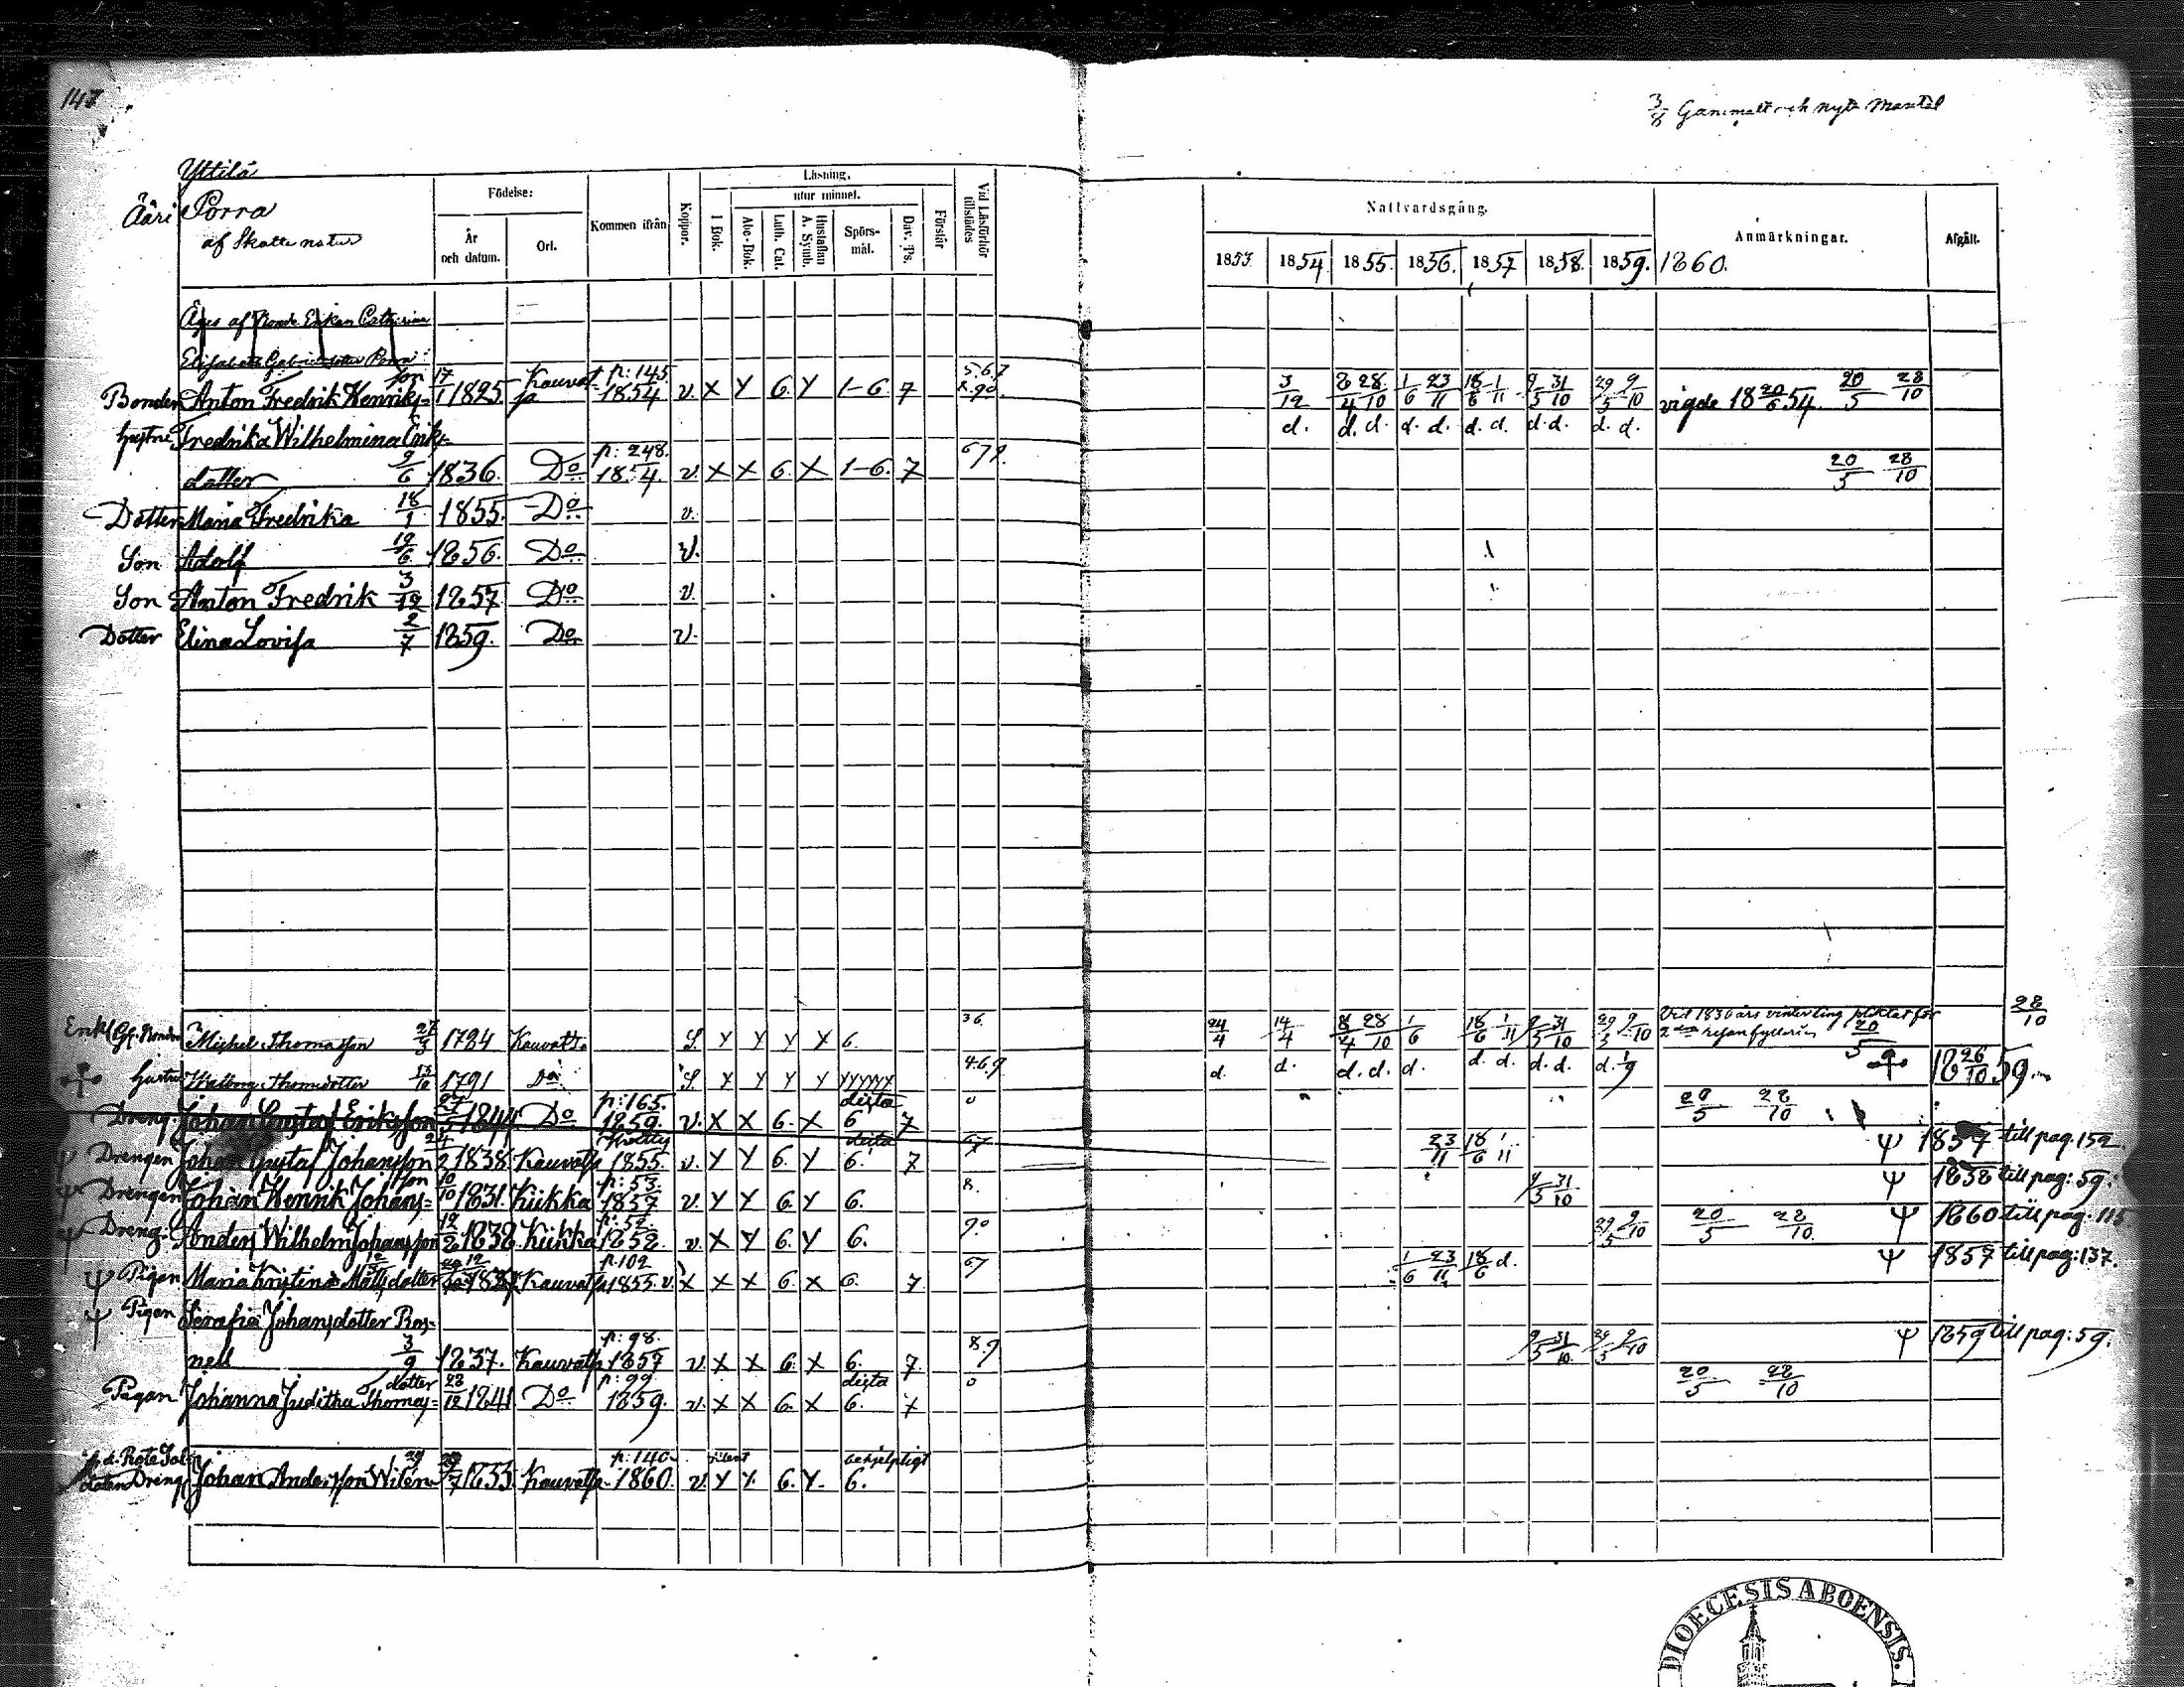 147
3/8 Gammalt och nytt Mantal
Yttilä
Ääri Porra
af Skatte natur
Födelse:
År och datum.
Ort.
Kommen ifrån
Koppor.
Läsning.
I Bok.
utur minnet.
Abc-Bok.
Luth. Cat.
Hustaflan A. Symb.
Spörs-mål.
Dav. Ps.
Förstår
Vid Läsförhör tillstädes
Nattvardsgång.
1853. 1854. 1855. 1856. 1857. 1858. 1859. 1860.
Anmärkningar.
Afgått.
Äges af Bonde Enkan Catharina
Elisabeth Gabrielsdotter Porra
Bonden Anton Fredrik Henriksson 17/1 1825 Kauvatsa p: 145 1854 v. X Y 6. Y 1-6. 7 3/12 8/4 28/10 1/6 23/11 18/6 1/11 9/5 31/10 29/5 9/10 vigde 18 20/6 54. 20/5 28/10
hustru Fredrika Wilhelmina Eriks- d. d. d. d. d. d. d. d. d. d. d.
dotter 9/6 1836. Do p: 248. 1854. v. X X 6. X 1-6. 7 20/5 28/10
Dotter Maria Fredrika 18/1 1855. Do v.
Son Adolf 19/6 1856. Do v.
Son Anton Fredrik 3/12 1857 Do v.
Dotter Elina Lovisa 2/7 1859. Do v.
Michel Thomasson 27/3 1784 Kauvatsa S. Y Y Y Y 6. 36. 24/4 14/4 8/4 28/10 1/6 18/6 1/11 9/5 31/10 29/5 9/10 20/5 28/10
hustru Thomsdotter 13/10 1791 Do S. Y Y Y Y YYYYYY 4.6.9 d. d. d. d. d. d. d. d. d. d. 18 26/10 59.
Dreng. Johan Gustaf Eriksson 1844 Do p: 165. 1859. v. X X 6. X 6 7 0 20/5 28/10
Drengen Johan Gustaf Johansson 24/2 1838. Kauvatsa 1855. v. Y Y 6. Y 6. 7 67 23/11 18/6 1/11 Ψ 1857 till pag. 152
Drengen Johan Henrik Johansson 10/10 1831. Kiikka p: 53. 1857 v. Y Y 6. Y 6. 8. 9/5 31/10 Ψ 1858 till pag: 59.
Dreng. Anders Wilhelm Johansson 12/2 1838. Kiikka p: 52. 1858. v. X Y 6. Y 6. 9.0 29/5 9/10 20/5 28/10 Ψ 1860 till pag. 115
Ψ Pigan Maria Kristina Matsdotter Kauvatsa p. 102 1855. v. X X X 6. X 6. 7. 67 1/6 23/11 18/6 d. Ψ 1857 till pag: 137.
Ψ Pigan Serafia Johansdotter Ros-
nell 3/9 1837. Kauvatsa p: 98. 1857 v. X X 6. X 6. 7. 8.9 9/5 31/10 29/5 9/10 Ψ 1859 till pag: 59.
Pigan Johanna Juditha Thomasdotter 28/12 1841. Do p: 99. 1859. v. X X 6. X 6. 7 0 20/5 28/10
Dreng Johan Andersson Wilén 29/7 1835. Kauvatsa p: 140 1860. v. Y Y. 6. Y. behjelpligt 6.
DIOECESIS ABOENSIS.